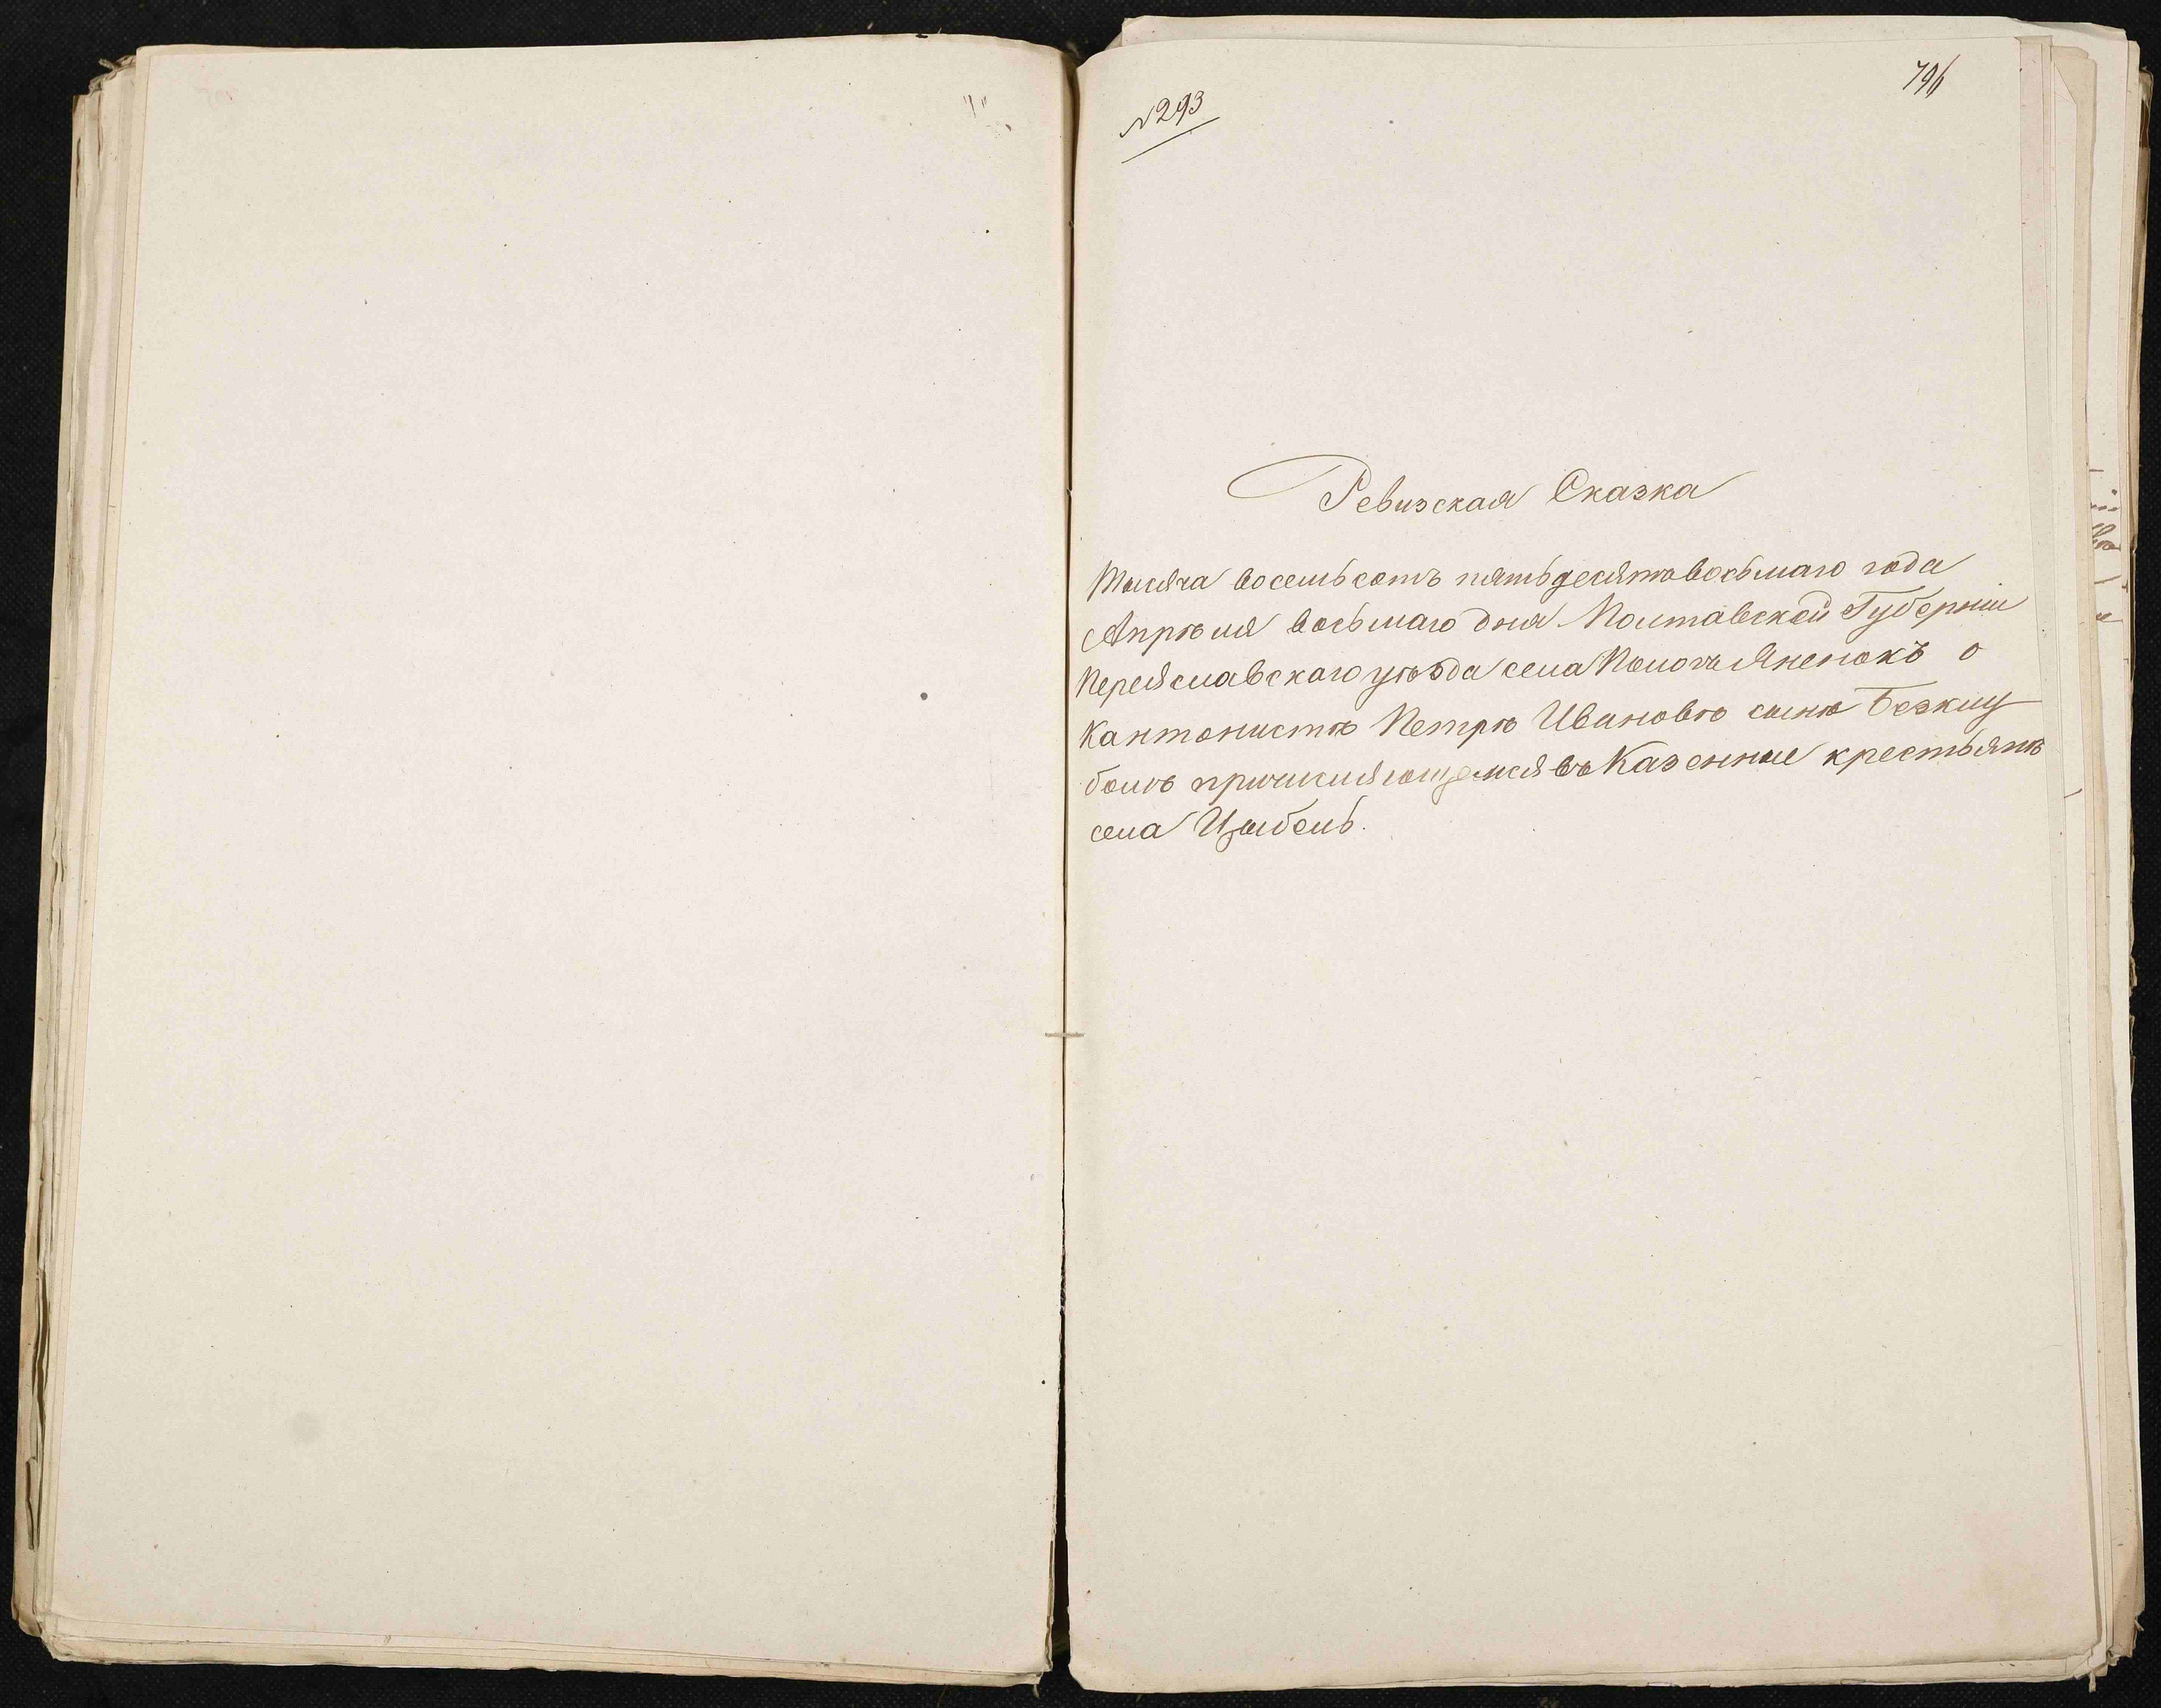 796
№293
Ревизская Сказка
Тысяча восемьсотъ пятьдесятъ восьмаго года
Апрѣля восьмаго дня Полтавской Губерніи
Переяславскаго уѣзда села Помоклянекъ о
Кантонистѣ Петрѣ Ивановѣ сынѣ Безкиш
причисляющемся въ Казенные крестьянѣ
села Цыбель.